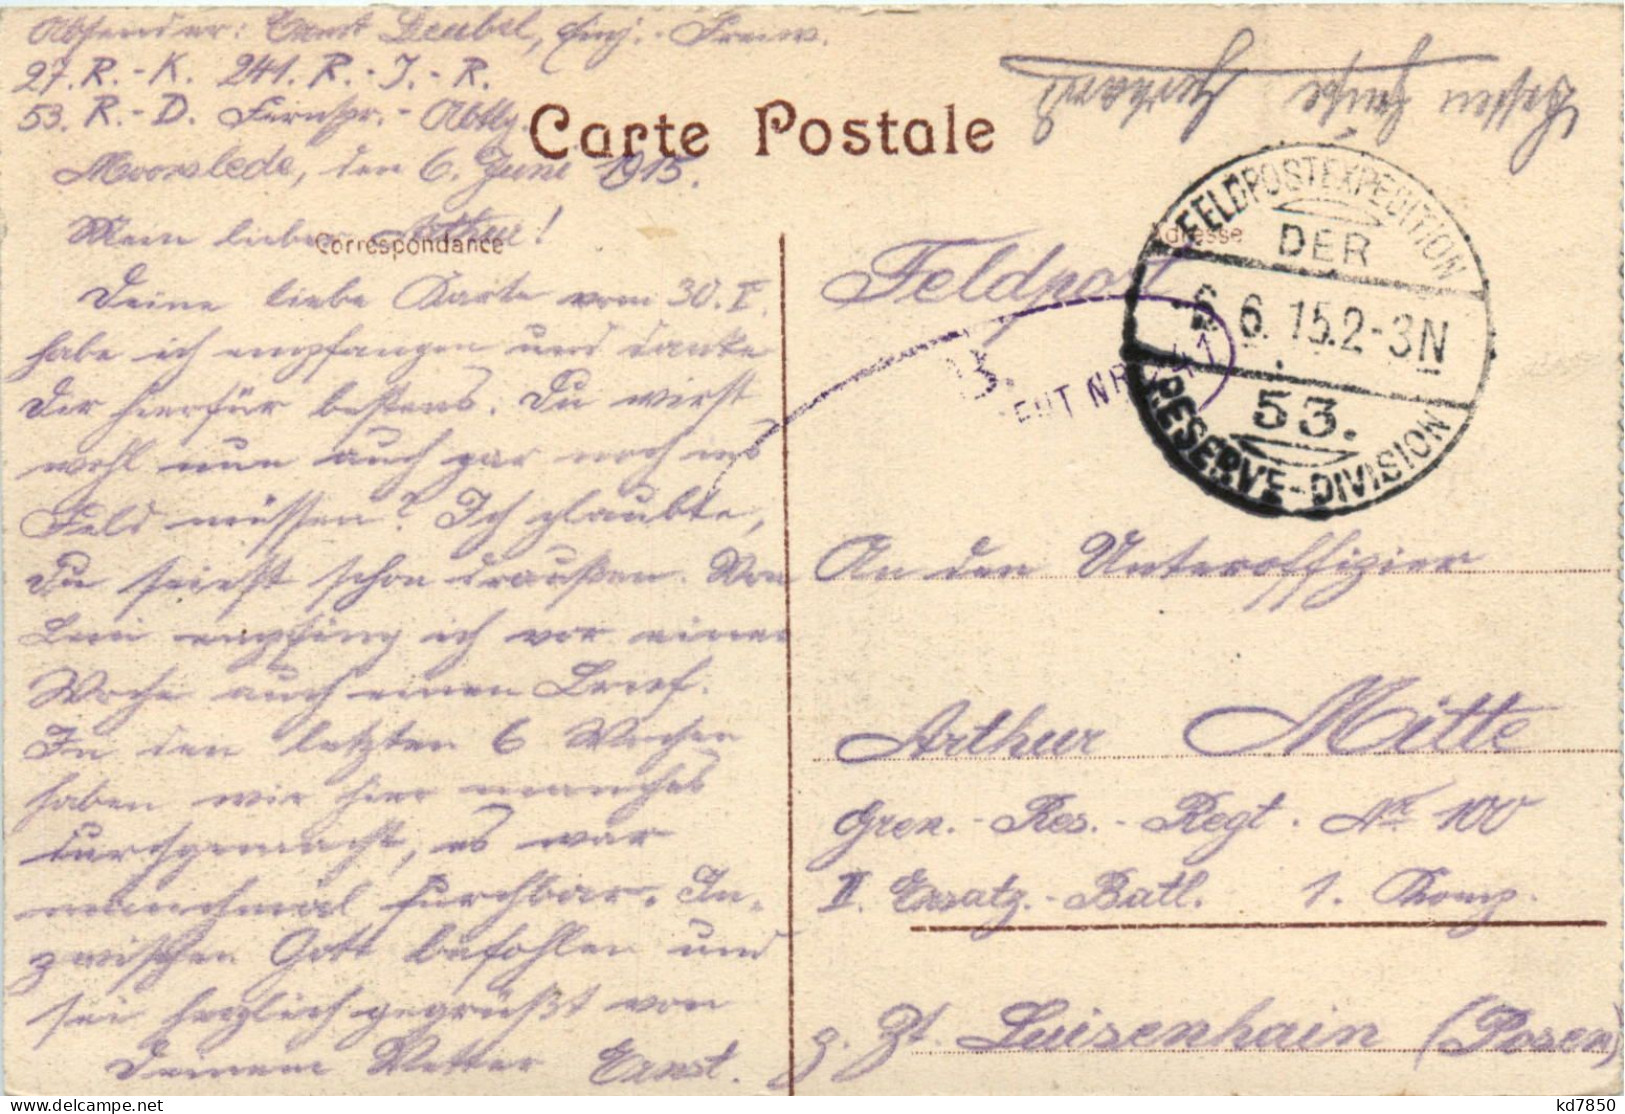 Absender: Ernst Deubel, Einj.-Freiw.
27. R.-K. 241. R.-I.-R.
53. R.-D. Fernspr.-Abtlg.
Carte Postale
Moorslede, den 6. Juni 1915.
Mein lieber Arthur!
Correspondance
Deine liebe Karte vom 30. V.
habe ich empfangen und danke
Dir hierfür bestens. Du wirst
wohl nun auch gar noch ins
Feld müssen? Ich glaubte,
Du seiest schon draußen. Von
Leni empfing ich vor einer
Woche auch einen Brief.
In den letzten 6 Wochen
haben wir hier manches
durchgemacht, es war
manchmal furchtbar. In-
zwischen Gott befohlen und
sei herzlich gegrüßt von
Deinem Vetter Ernst.
Adresse
Feldpost
FELDPOSTEXPEDITION
DER
6. 6. 15. 2-3 N
53.
RESERVE-DIVISION
NR 241
An den Unteroffizier
Arthur Mitte
Gren.-Res.-Regt. Nr 100
II. Ersatz-Batl. 1. Komp.
z. Zt. Luisenhain (Posen)
Gerhard
kd7850